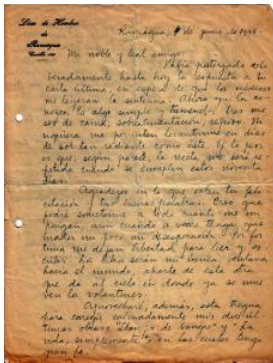 Liceo de Hombres
de
Rancagua
Rancagua, 4 de junio de 1948.-
Mi noble y leal amigo:
Había postergado deli-
beradamente hasta hoy la respuesta a tu
carta última, en espera de que los médicos
me leyeran la sentencia. Ahora ya la co-
nozco. Es algo simple y tremendo: tres me-
ses de cama, sobrealimentación, reposo. Ni
siquiera me permiten levantarme en días
de sol tan radiante como éste. Y lo peor
es que, según parece, la receta me será re-
petida cuando se cumplan estos noventa
días.
Agradezco en lo que valen tu feli-
citación y tus buenas palabras. Creo que
podré someterme a todo cuanto me im-
pongan, aun cuando a veces tengo que
luchar un poco mi desesperación. Por for-
tuna me dejan libertad para leer y es-
cribir. Los libros serán mi única ventana
hacia el mundo, aparte de esta otra
que da al cielo en donde ya se mue-
ven los volantines.
Aprovecharé, además, esta tregua
para corregir calmadamente mis dos úl-
timas obras:
vida, simplemente", en las cuales tengo